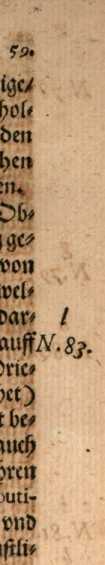 59.
ige⸗
hol⸗
den
hen
en.
Ob⸗
ge⸗
von
wel⸗
dar⸗ l
auff N. 83.
rie⸗
het)
t be⸗
auch
hren
outi-
vnd
stli⸗